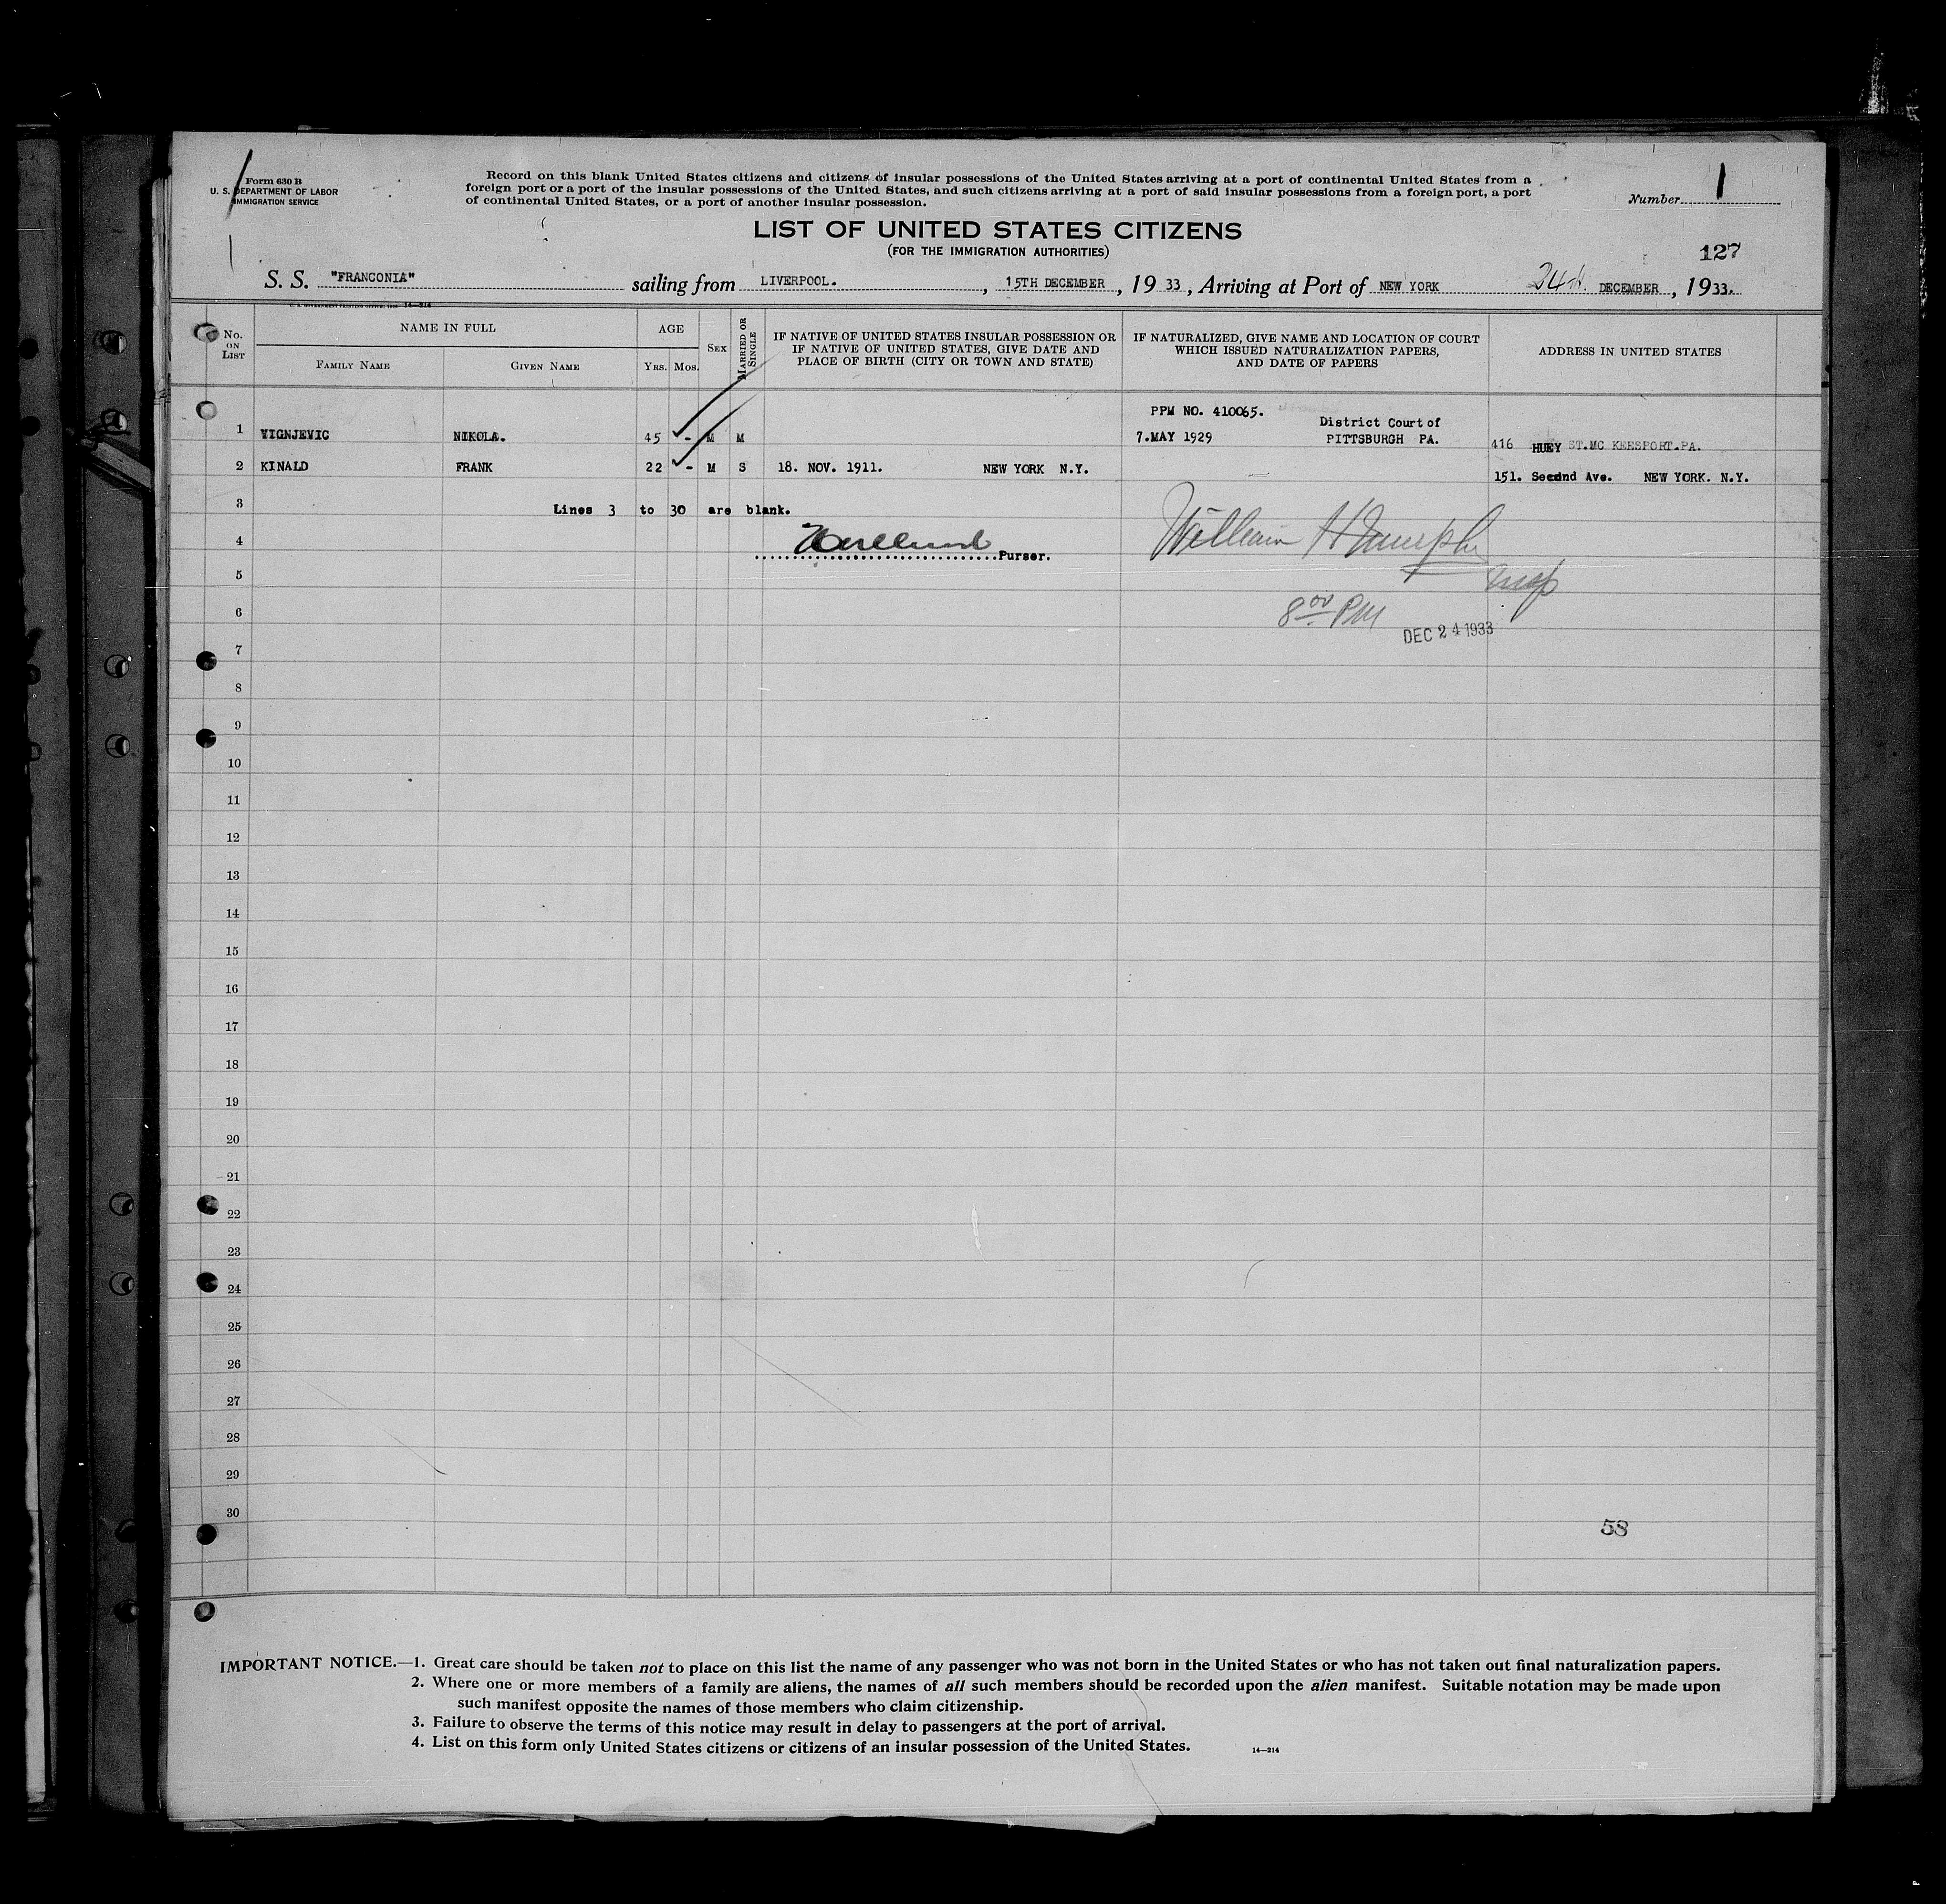 Form 630 B
U. S. DEPARTMENT OF LABOR
IMMIGRATION SERVICE
Record on this blank United States citizens and citizens of insular possessions of the United States arriving at a port of continental United States from a
foreign port or a port of the insular possessions of the United States, and such citizens arriving at a port of said insular possessions from a foreign port, a port
of continental United States, or a port of another insular possession.
Number 1
LIST OF UNITED STATES CITIZENS
(FOR THE IMMIGRATION AUTHORITIES)
127
S. S. "FRANCONIA" sailing from LIVERPOOL. , 15TH DECEMBER , 19 33 , Arriving at Port of NEW YORK 24th. DECEMBER , 19 33.
14—214
No. ON LIST
NAME IN FULL
FAMILY NAME
GIVEN NAME
AGE
YRS. MOS.
SEX
MARRIED OR SINGLE
IF NATIVE OF UNITED STATES INSULAR POSSESSION OR
IF NATIVE OF UNITED STATES, GIVE DATE AND
PLACE OF BIRTH (CITY OR TOWN AND STATE)
IF NATURALIZED, GIVE NAME AND LOCATION OF COURT
WHICH ISSUED NATURALIZATION PAPERS,
AND DATE OF PAPERS
ADDRESS IN UNITED STATES
PPM NO. 410065. District Court of
1 VIGNJEVIC NIKOLA. 45 - M M 7.MAY 1929 PITTSBURGH PA. 416 HUEY ST.MC KEESPORT.PA.
2 KINALD FRANK 22 - M S 18. NOV. 1911. NEW YORK N.Y. 151. Second Ave. NEW YORK. N.Y.
3 Lines 3 to 30 are blank.
4 Purser. William H Murphy
5 Insp
6 8:00 PM DEC 24 1933
7
8
9
10
11
12
13
14
15
16
17
18
19
20
21
22
23
24
25
26
27
28
29
30
58
IMPORTANT NOTICE.—1. Great care should be taken not to place on this list the name of any passenger who was not born in the United States or who has not taken out final naturalization papers.
2. Where one or more members of a family are aliens, the names of all such members should be recorded upon the alien manifest. Suitable notation may be made upon
such manifest opposite the names of those members who claim citizenship.
3. Failure to observe the terms of this notice may result in delay to passengers at the port of arrival.
4. List on this form only United States citizens or citizens of an insular possession of the United States. 14—214